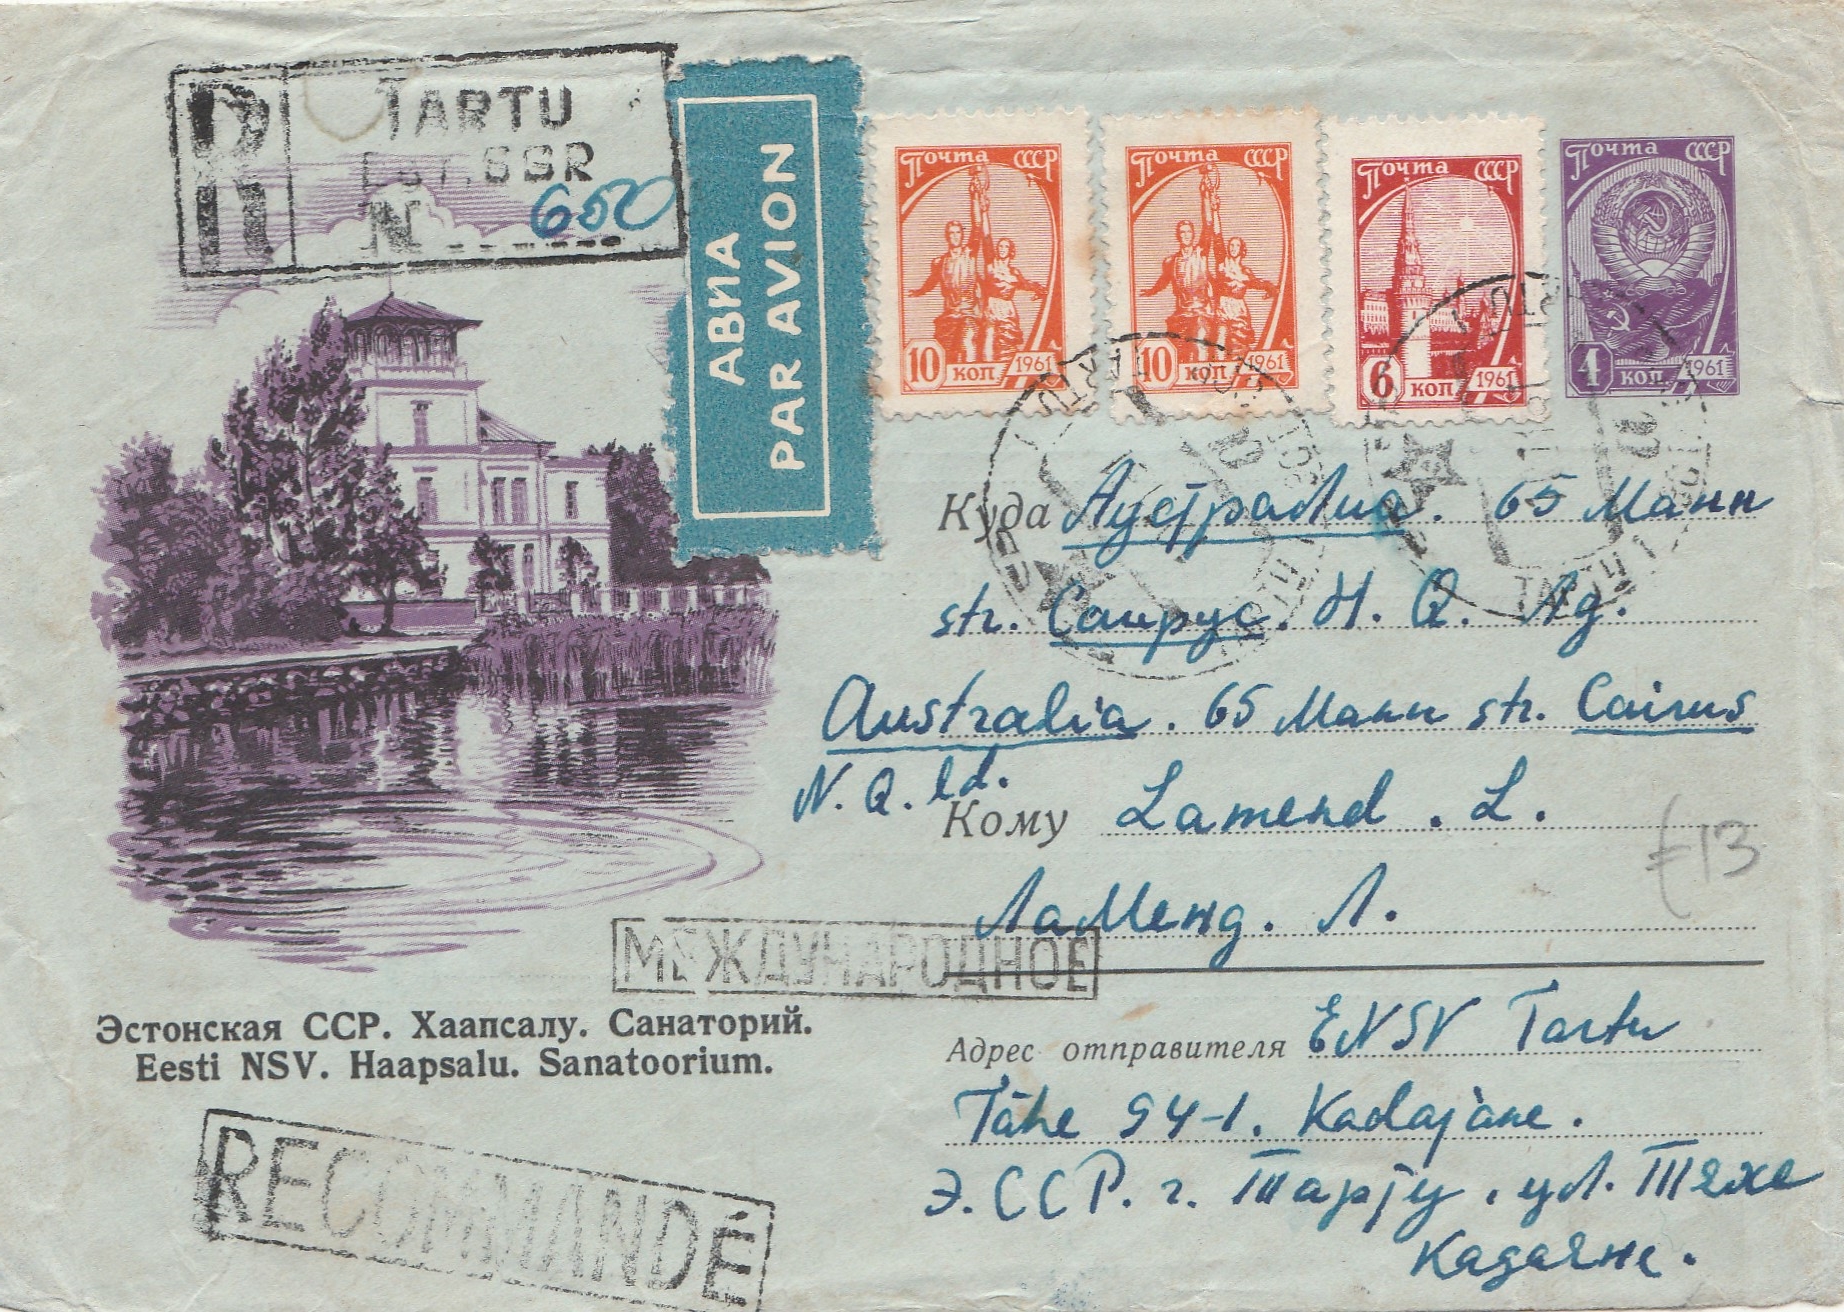 R TARTU
Est. SSR
N 650
АВИА
PAR AVION
Почта СССР
10 коп 1961
Почта СССР
10 коп 1961
Почта СССР
6 коп 1961
Почта СССР
4 коп 1961
TARTU
Куда Аустралиа. 65 Манн
str. Саирус. Н. Q. Лд.
Australia. 65 Манн str. Cairus
N. Q. ld.
Кому Lamend. L.
ЛаМенд. Л.
£13
МЕЖДУНАРОДНОЕ
Эстонская ССР. Хаапсалу. Санаторий.
Eesti NSV. Haapsalu. Sanatoorium.
Адрес отправителя ENSV Tartu
Tähe 94-1. Kadajane.
Э. ССР. г. Тарту. ул. Тяхе
Кадаяне.
RECOMMANDÉ